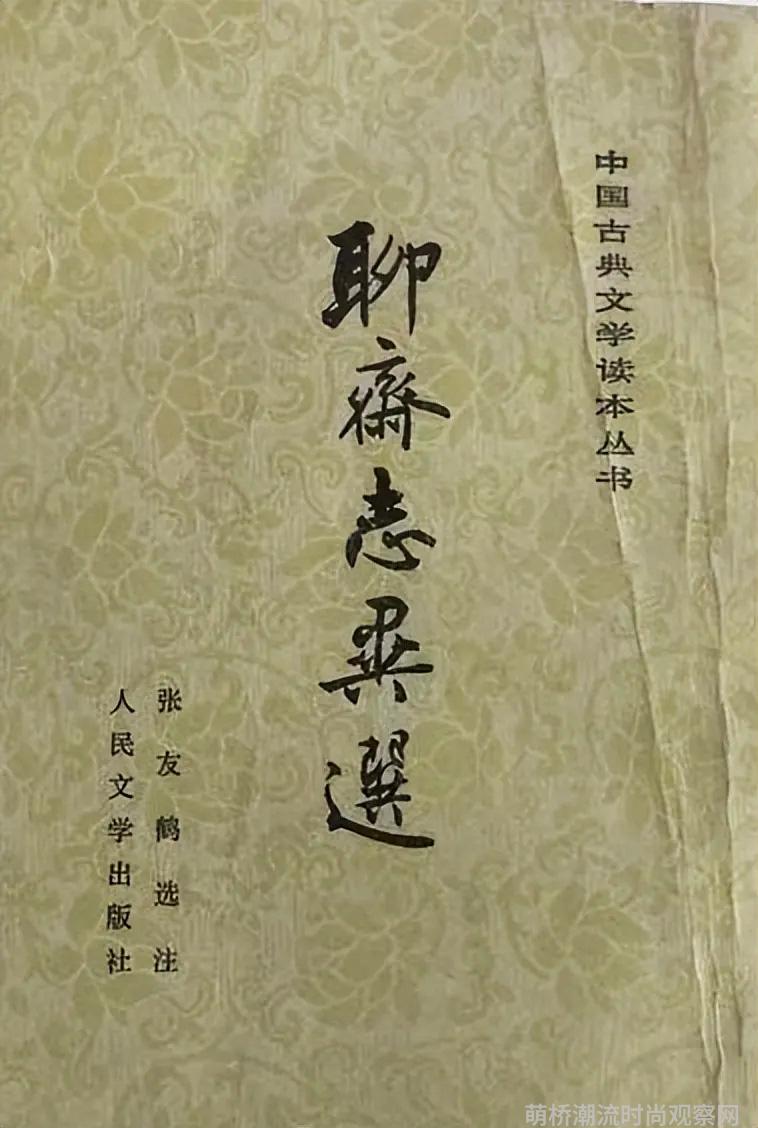 中国古典文学读本丛书
聊齋志異選
张友鹤选注
人民文学出版社
萌桥潮流时尚观察网